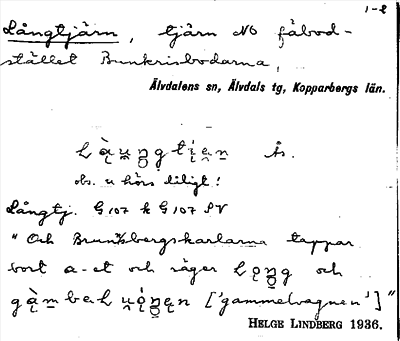 1-2
Långtjärn, tjärn NO fäbod-
stället Brunkrisbodarna,
Älvdalens sn, Älvdals tg, Kopparbergs län.
Ås.
obs. u hörs tiligt!
Långtj. G 107 k G 107 SV
"Och Brunkbergskarlarna tappar
bort a-et och säger och
['gammelvagnen']"
HELGE LINDBERG 1936.